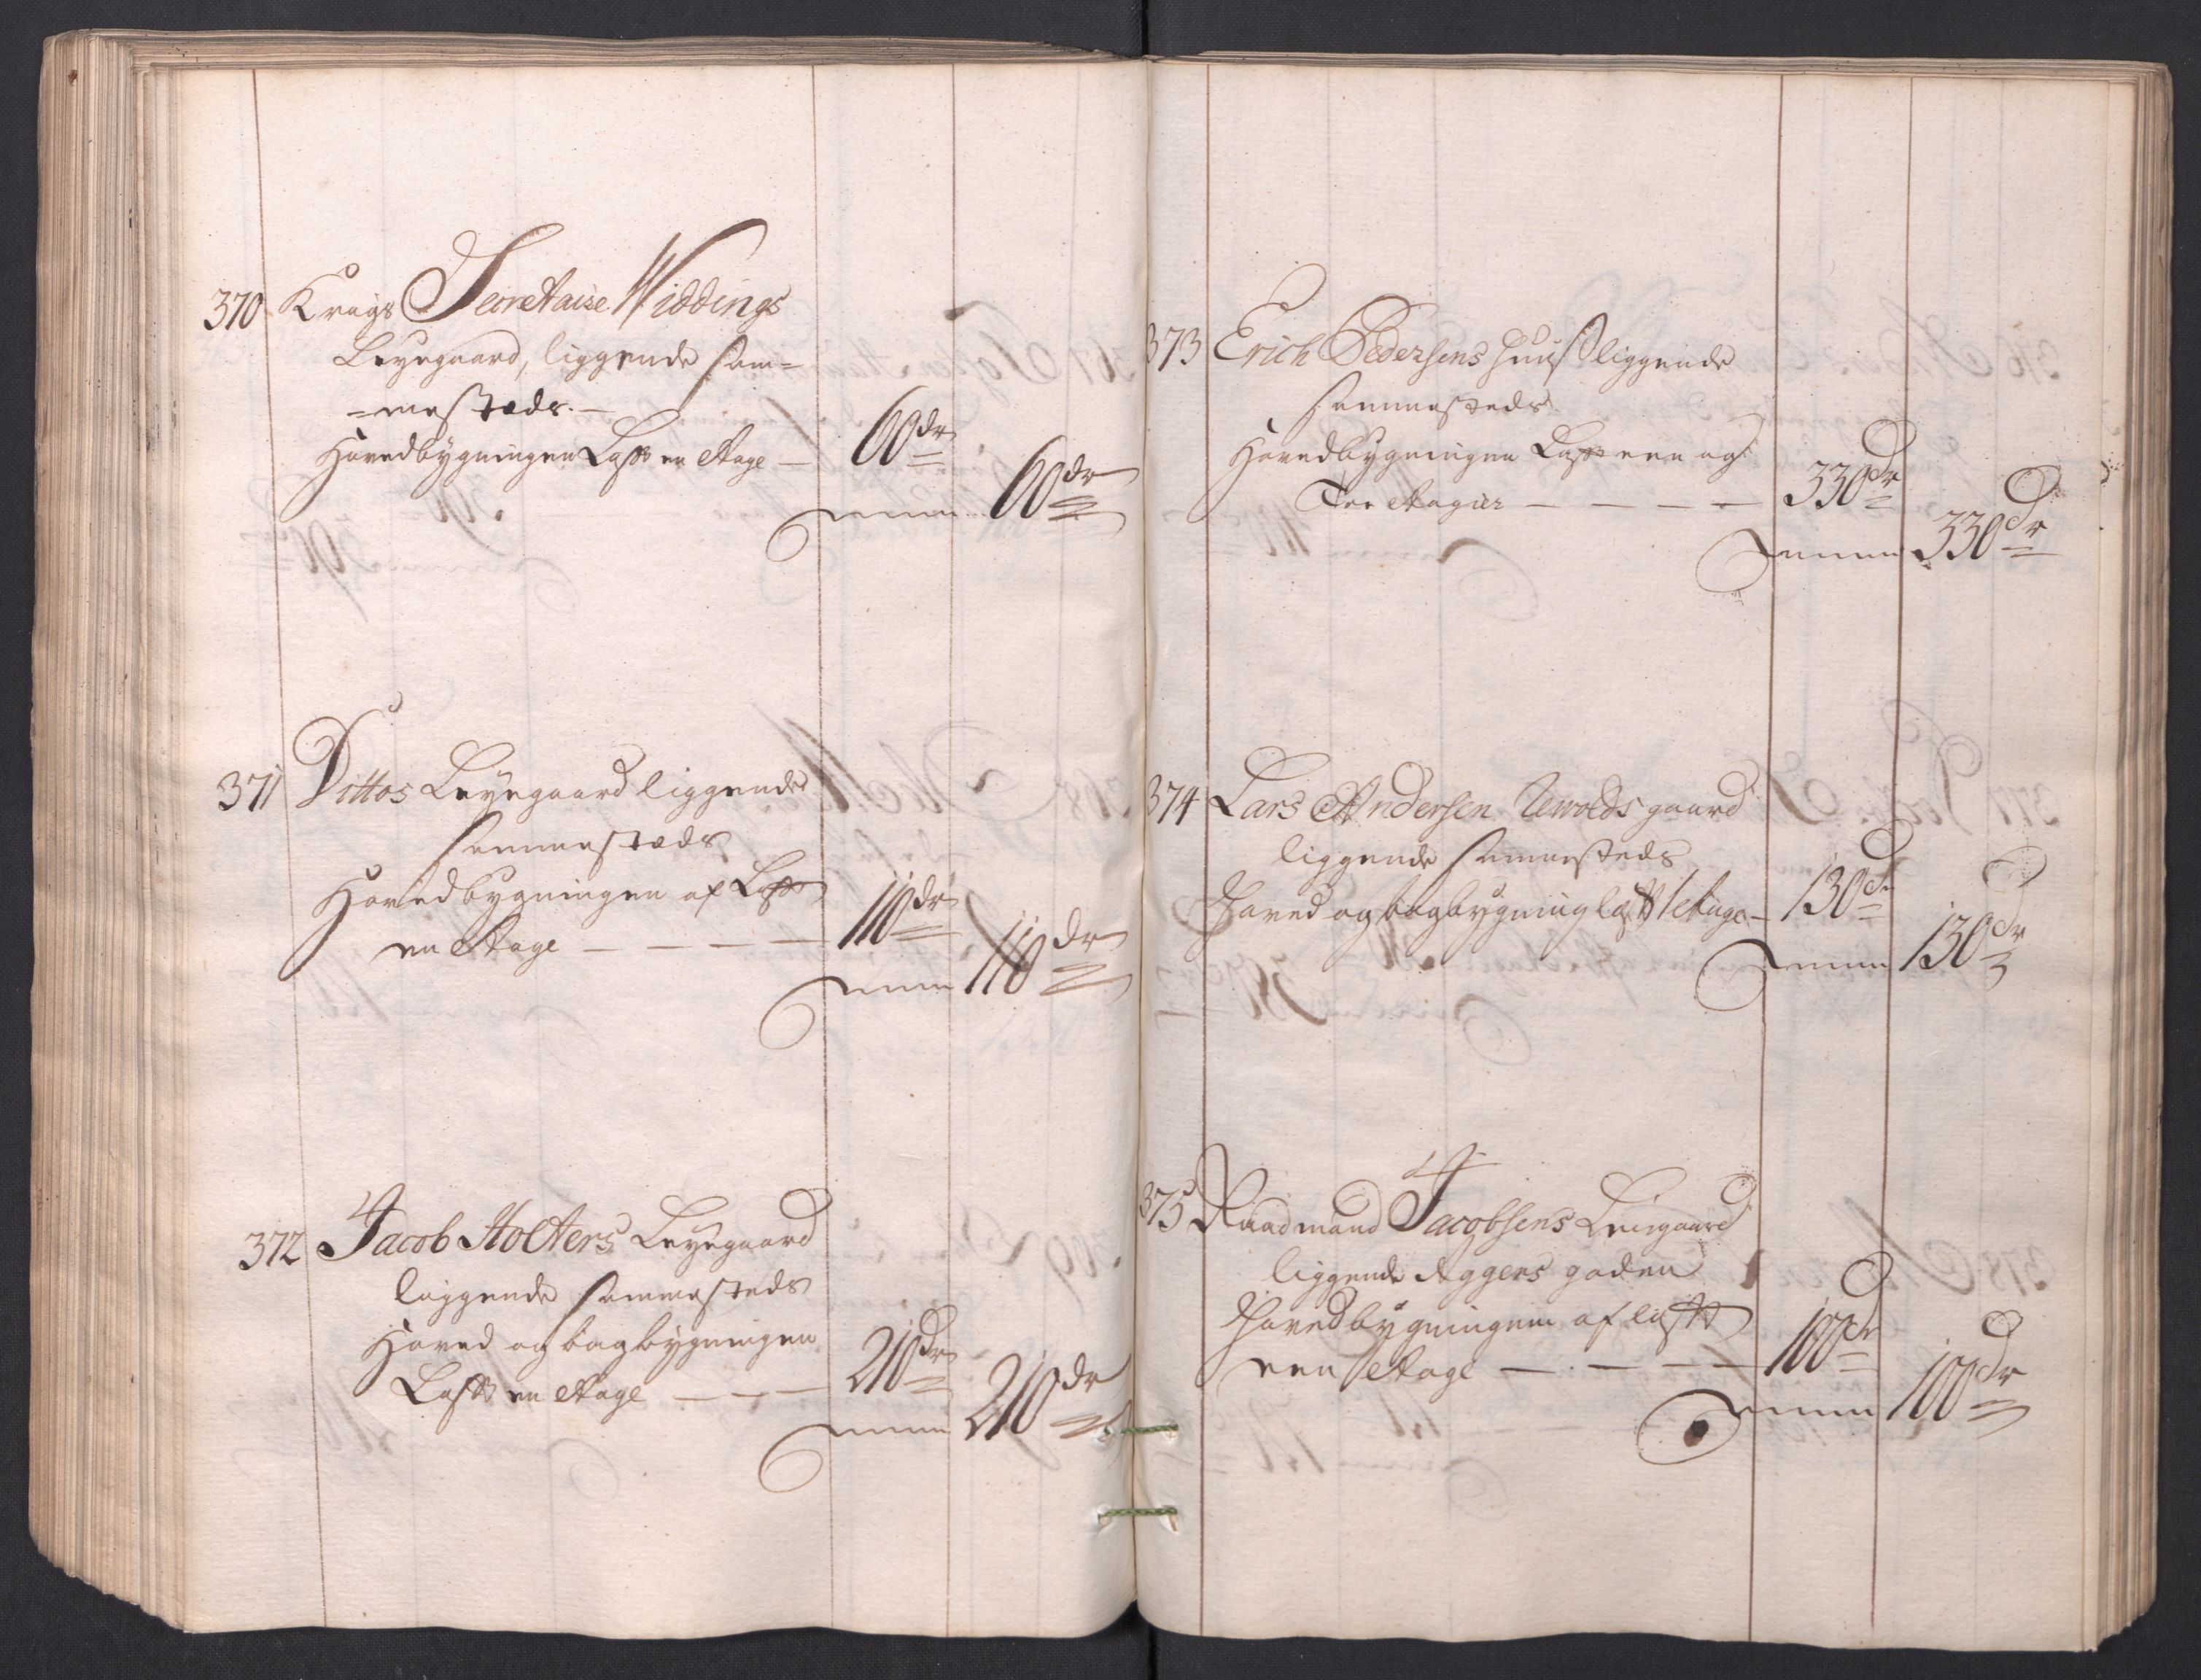 370 Krags Secretaire Widdings
Leyegaard, liggende sam=
=mesteds.
Hovedbygningen Læst en Etage — 60 dr
Summa 60 dr
371 Dittos Leyegaard liggende
sammesteds
Hovedbygningen af Læst
en Etage — — — — 110 dr
Summa 110 dr
372 Jacob Holters Leyegaard
liggende sammesteds
Hoved og bagbygningen
Læst en Etage — — — 210 dr
Summa 210 dr
373 Erich Pedersens Huus liggende
sammesteds
Hovedbygningen Læst een og
Toe Etagier — — — — 330 dr
Summa 330 dr
374 Lars Andersen gaard
liggende sammesteds
Hoved og bagbygning læst 1 etage — 130 dr
Summa 130 dr
375 Raadmand Jacobsens Leiegaard
liggende Aggers gaden
Hovedbygningen af læst
een Etage — — — — 100 dr
Summa 100 dr